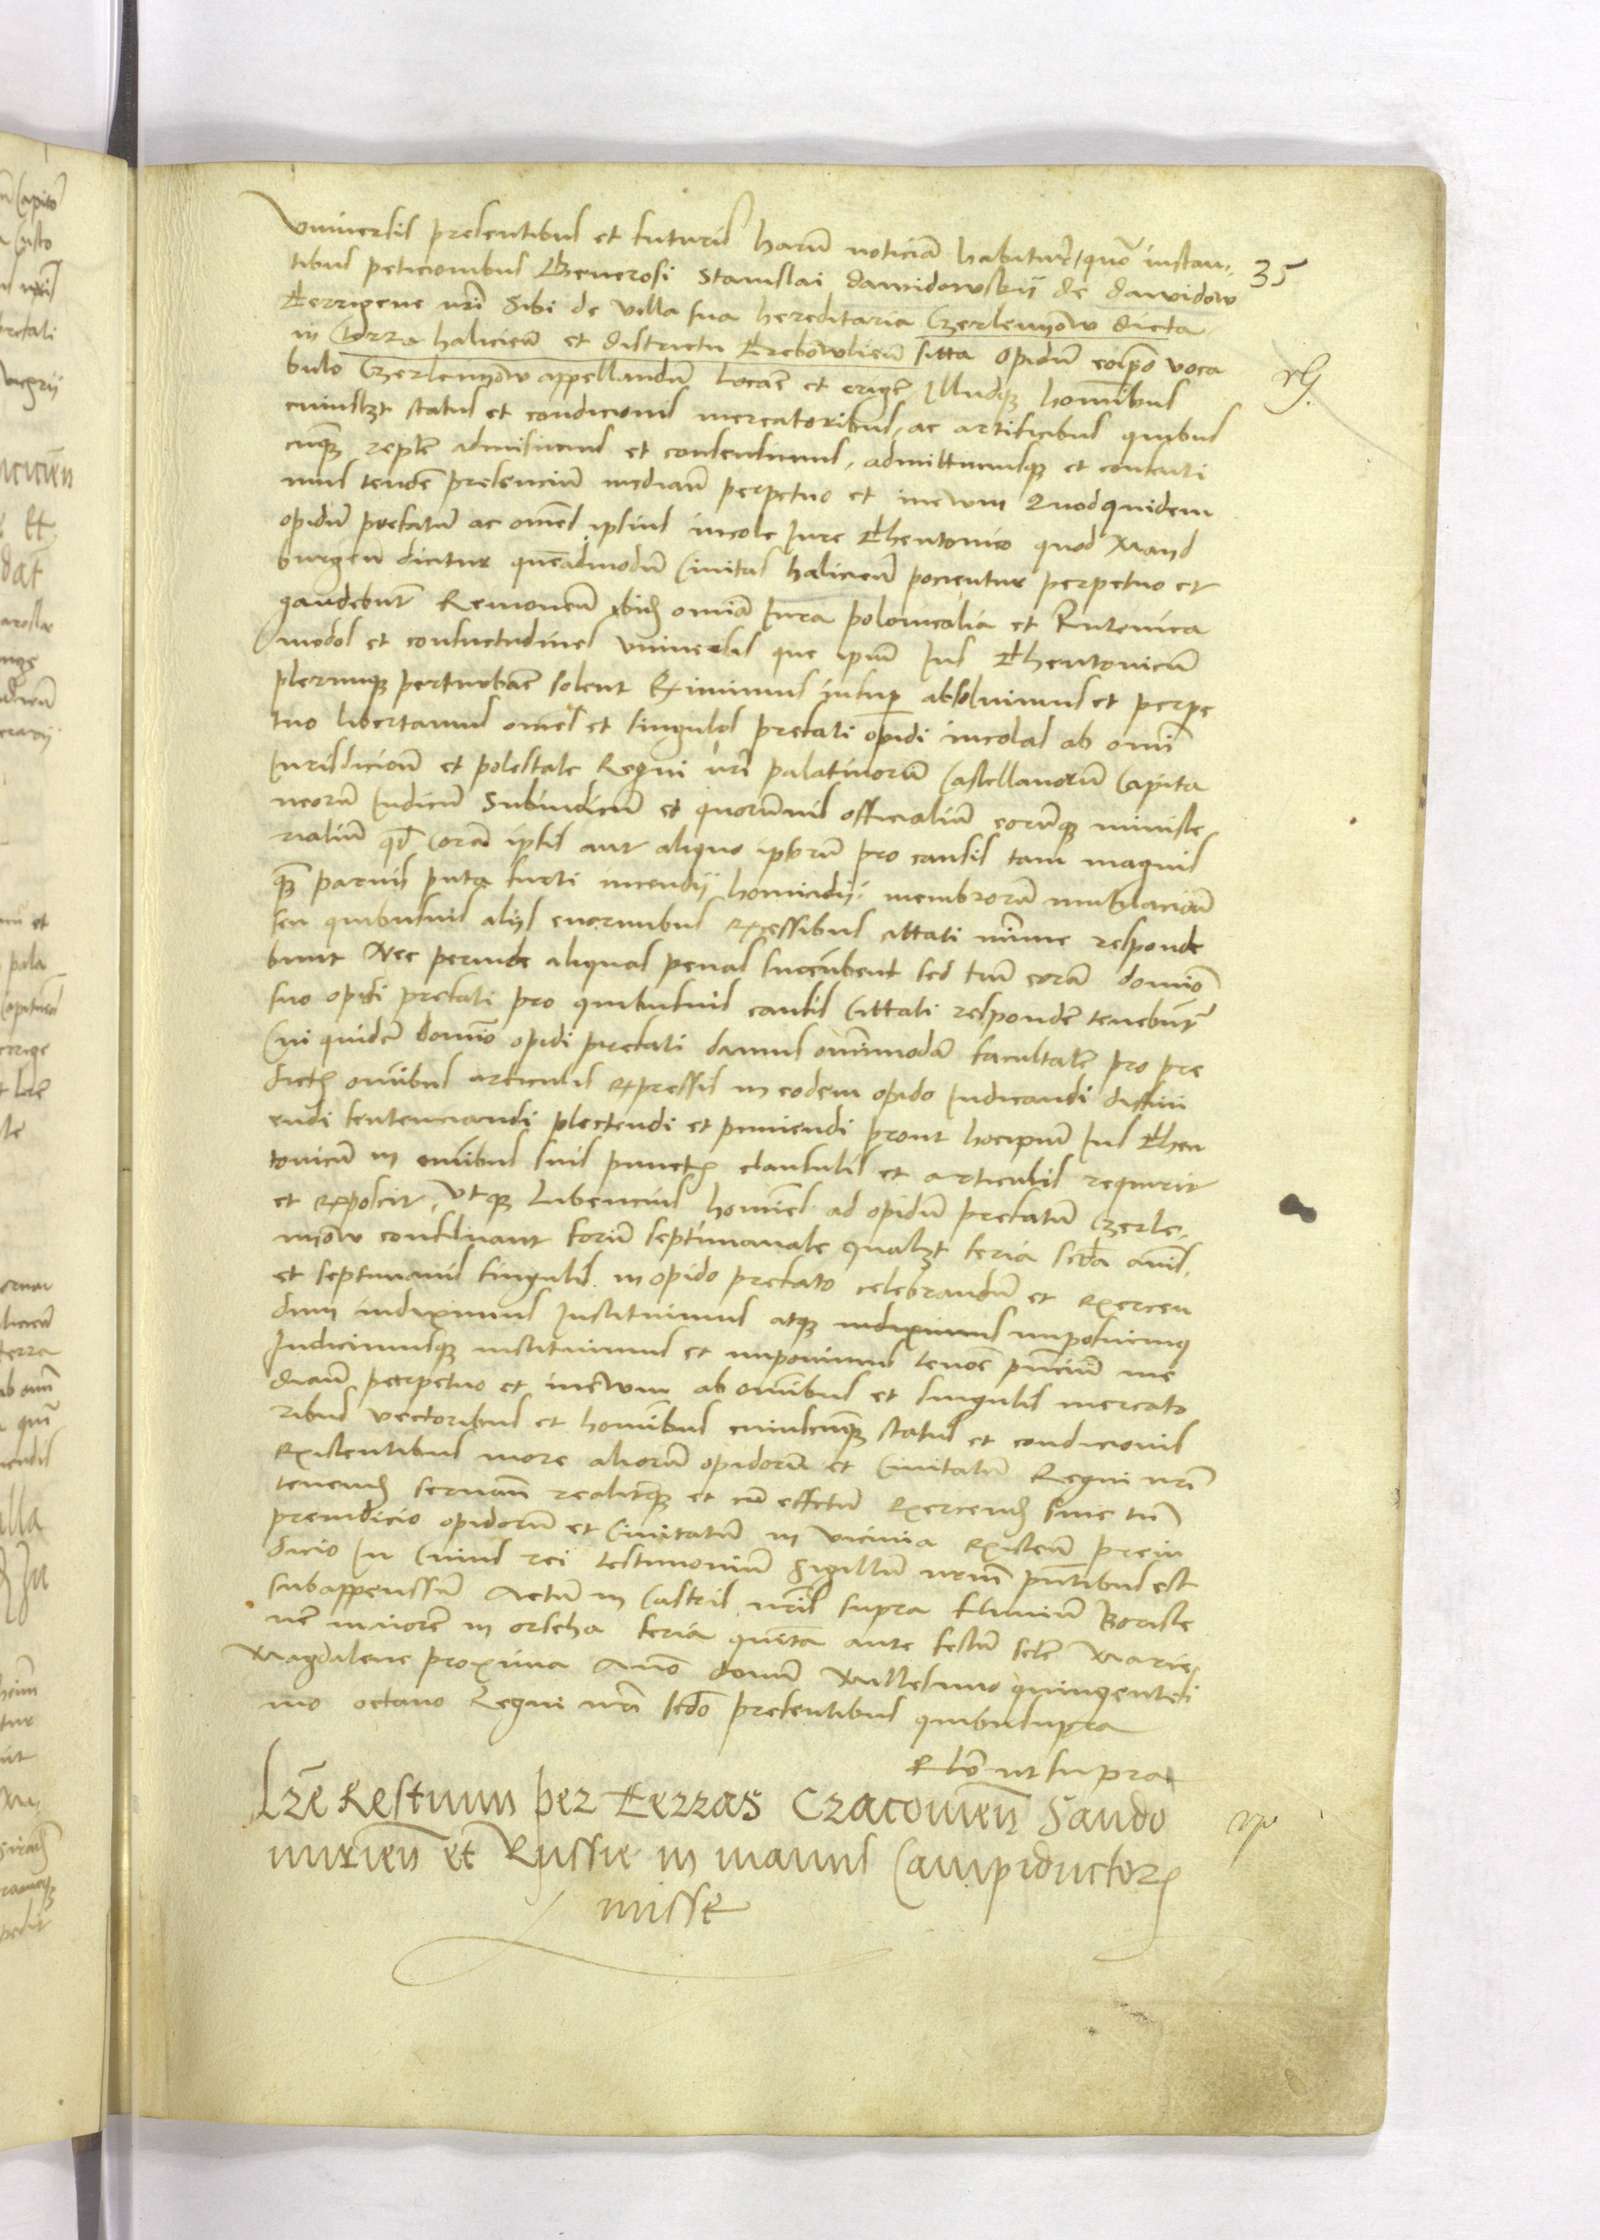 Universis presentibus et futuris harum noticiã habiturꝭ / quõ instan-
tibus peticionibus Generosi Stanislai dawidowskij de dawidow
35
Terrigene nr̃i Sibi de villa sua hereditaria Czerlenyow dicta
in terra halicieñ et districtu Trebowlieñ sitta opidũ eoip̃o voca
bulo Czerlenyow appellandũ Locar̃ et eriger̃ Illudqȝ hoĩbus
cuiuslȝt status et condicionis mercatoribus, ac artificibus quibus
cũqȝ repler̃ admisimus et consensimus, admittimusqȝ et consenti
mus tenore presenciũ mediañ perpetuo et inewm Quodquidem
opidũ prefatũ ac om̃es ipsius incole Jure Theutonico quod Maid
burgeñ dicitur queadmodũ Civitas halicieñ pocientur perpetuo et
gaudebunt Remoueñ ibidẽ omia Jura polonicalia et Rutenica
modos et consuetudines universis que ipm̃ Jus Theutonicũ
plerumqȝ perturbare solent Eximimus insup absoluimus et perpe
tuo libertamus om̃es et singulos prefati opidi incolas ab omi
Jurisdicione et potestate Regni nr̃i palatinorũ Castellanorũ Capita
neorũ Judicũ Subiudicũ et quorũuis officialiũ eorũqȝ ministe
rialiũ qđ coram ipsis aut aliquo ipsorũ pro causis tam magnis
qȝ parvis puta furti incendij homicidij membrorũ mutilacioñ
seu quibusuis alijs enormibus excessibus cittati mĩme responde
bunt Nec perinde aliquas penas succubent sed tm̃ corã domĩo
suo opidi prefati pro quibusuis causis Cittati responder̃ tenebunt
Cui quidẽ domĩo opidi prefati damus om̃imodã facultatẽ pro pre
dictꝭ om̃ibus articulis expressis in eodem opido Judicandi diffini
endi sentenciandi plectendi et puniendi prout hocipm̃ Jus Theu
tonicũ in om̃ibus suis punctꝭ clausulis et articulis requirit
et exposcit, Utqȝ Lubencius hoĩes ad opidũ prefatũ Czerle-
nyow confluant forũ septimanale qualȝt feria scđa añis
et septimanis singulis in opido prefato celebrandũ et exercen
dum indiximus Instituimus atqȝ indiximus imposuimus
Indicimusqȝ instituimus et imponimus tenor̃ pñciũ me
diañ perpetuo et inewm ab om̃ibus et singulis mercato
ribus vectoribus et hoĩbus cuiuscũqȝ status et condicionis
existentibus more aliorũ opidorũ et Civitatũ Regni nr̃i
teneñ servañ realitqȝ et cũ effectũ exerceñ sine tñ
preiudicio opidorũ et Civitatũ in vicinia existeñ preiu
dicio In Cuius rei testimoniũ Sigillũ nrũm pñtibus est
subappenssũ Actũ in Castris nr̃is supra fluviũ Boriste
nẽ maiorẽ in orscha feria quinta ante festũ sctẽ Marie
Magdalene proxima Anno domĩ Millesimo quingentesi
mo octavo Regni nr̃i scđo presentibus quibussupra
Rlõ ut supra
Lr̃e Restium per Terras Cracovieñ Sando
mirieñ et Russie in manus Campiductorꝭ
misse